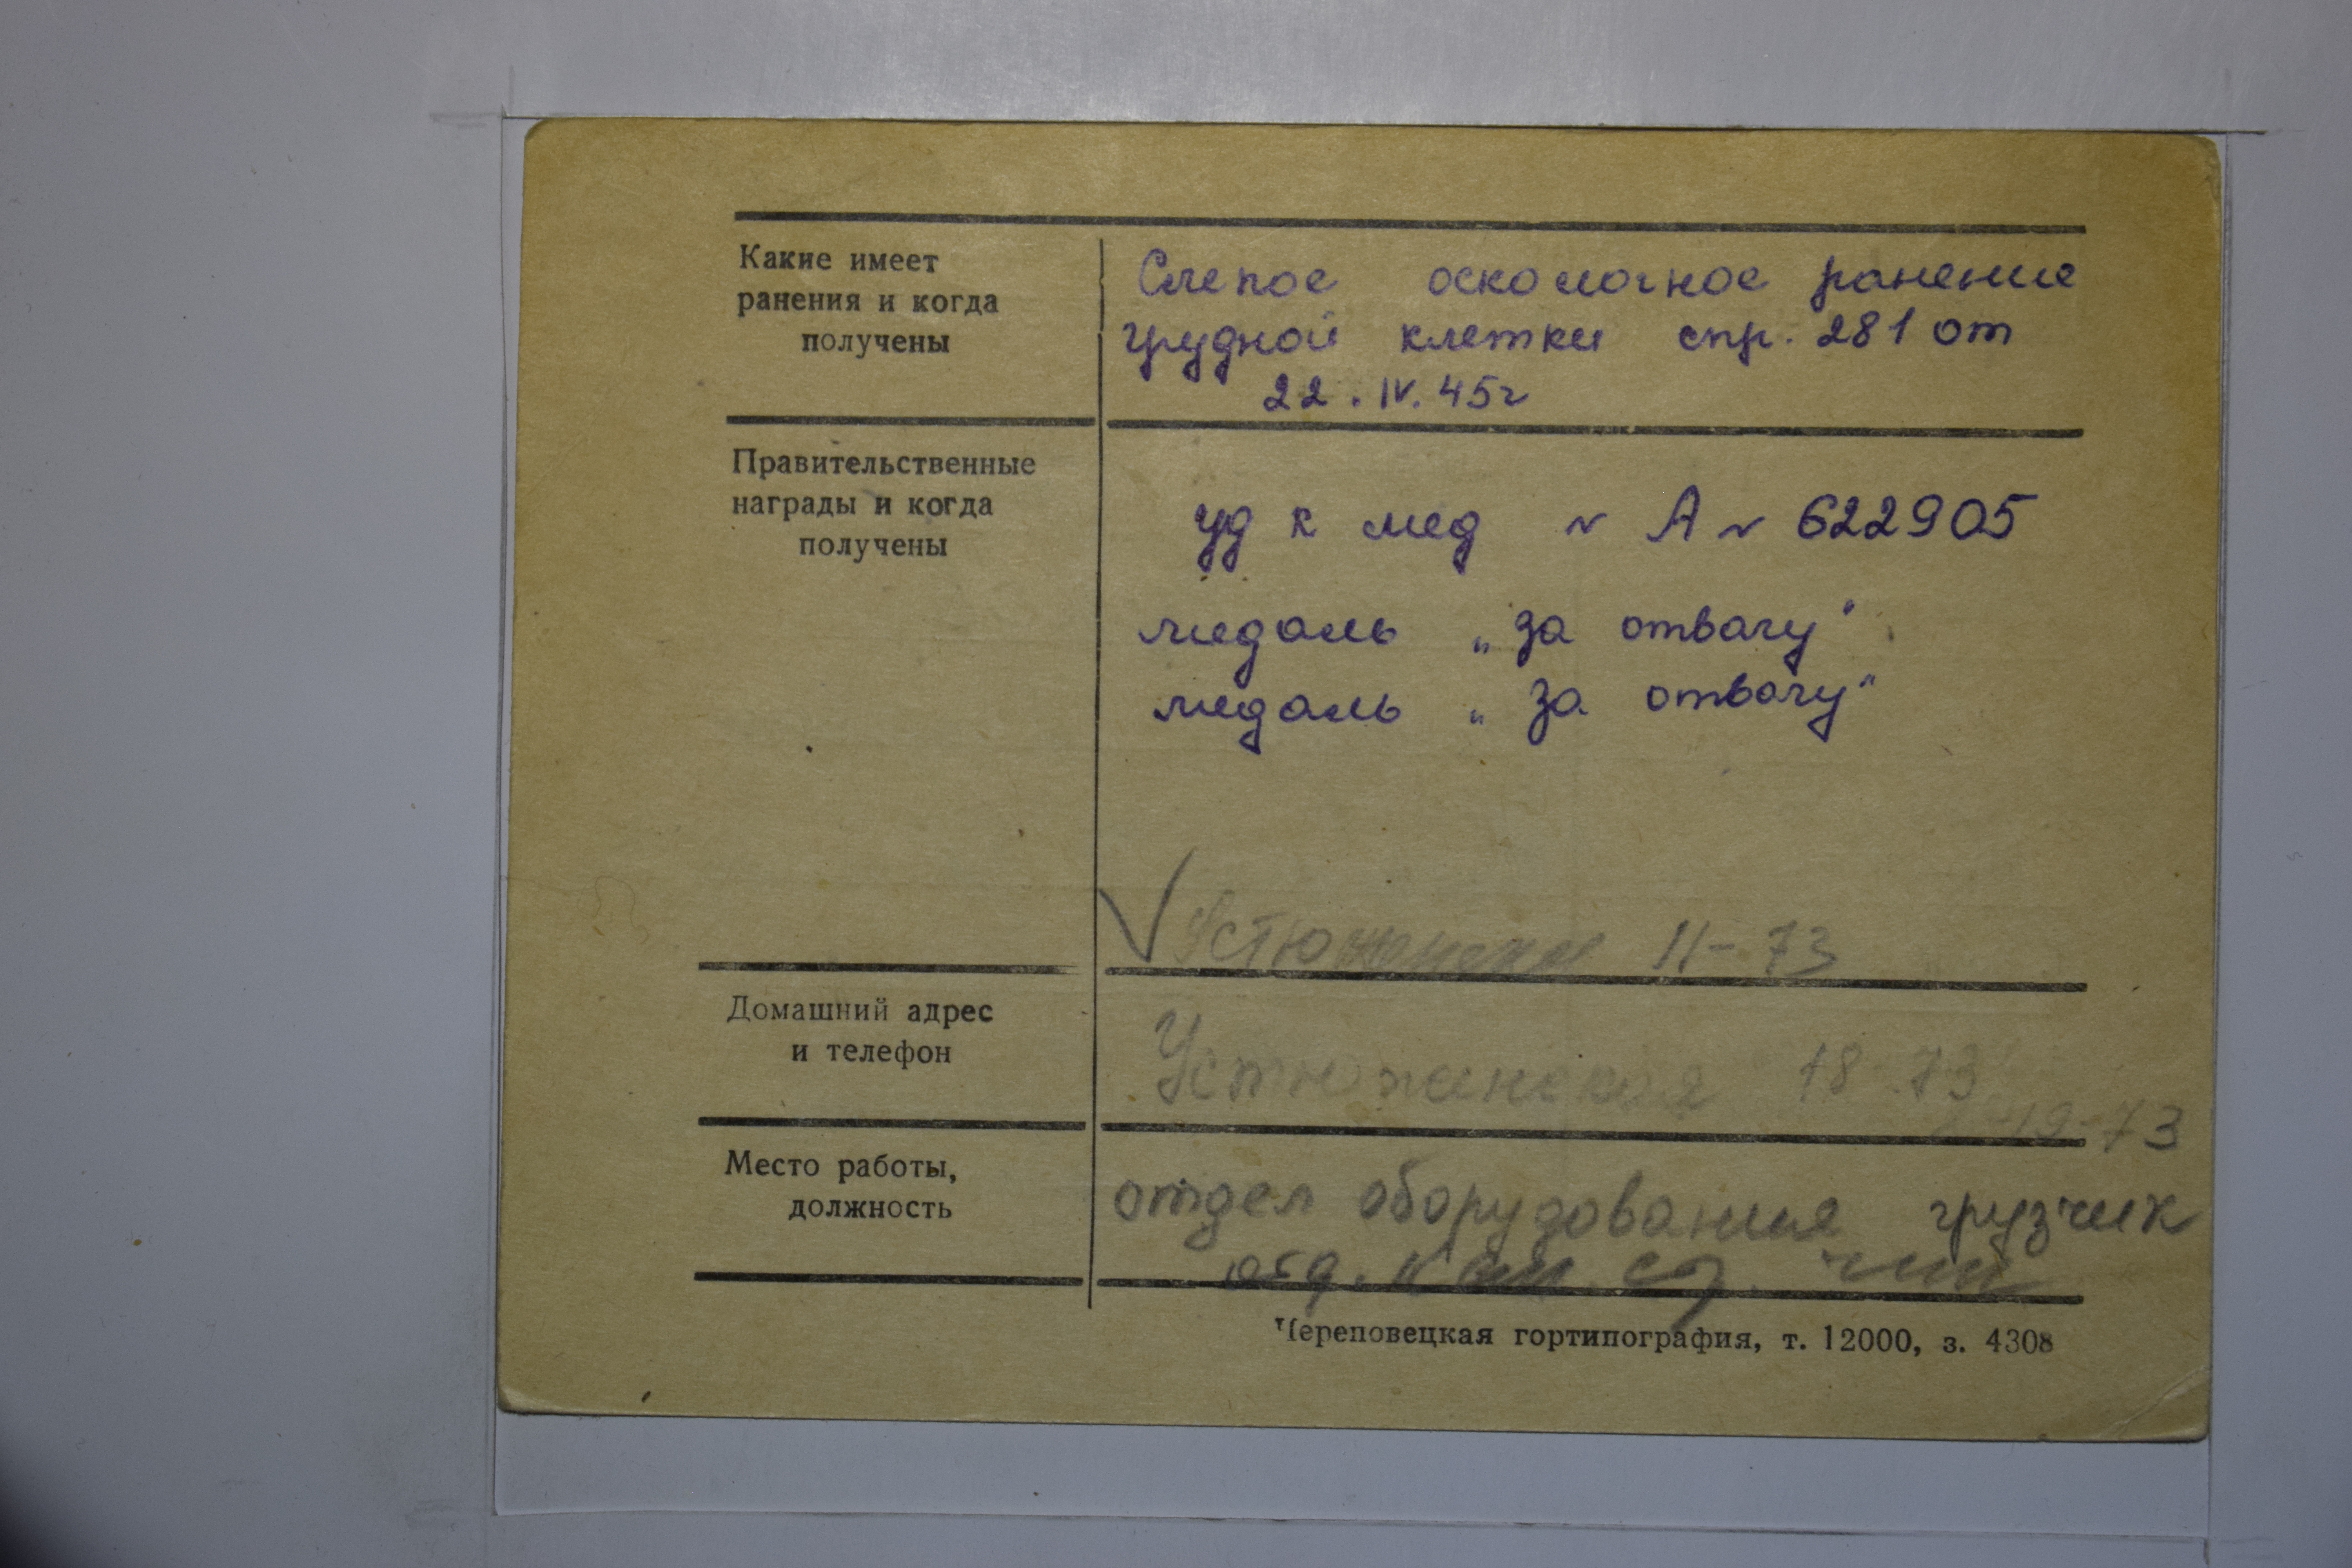 Какие имеет
ранения и когда
получены
Слепое осколочное ранение
грудной клетки спр. 281 от
22. IV. 45г
Правительственные
награды и когда
получены
уд к мед № А № 622905
медаль „за отвагу"
медаль „за отвагу"
11-73
Домашний адрес
и телефон
Устюженская 18-73
19-73
Место работы,
должность
отдел оборудования грузчик
Череповецкая гортипография, т. 12000, з. 4308